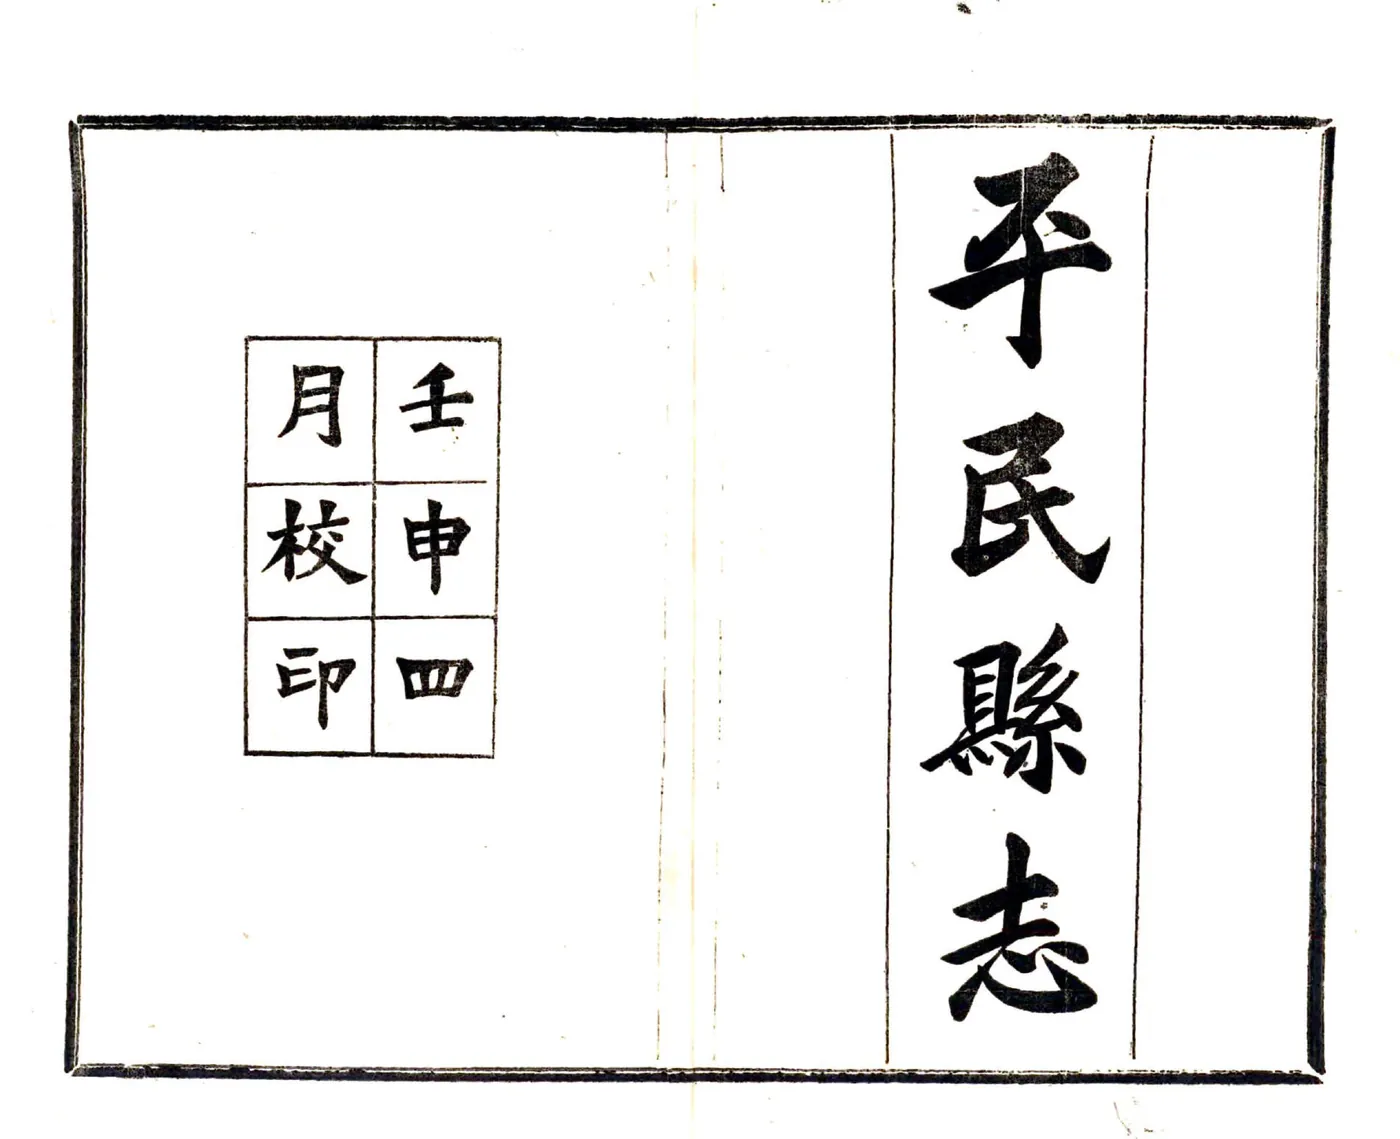 平民縣志
壬申四
月校印